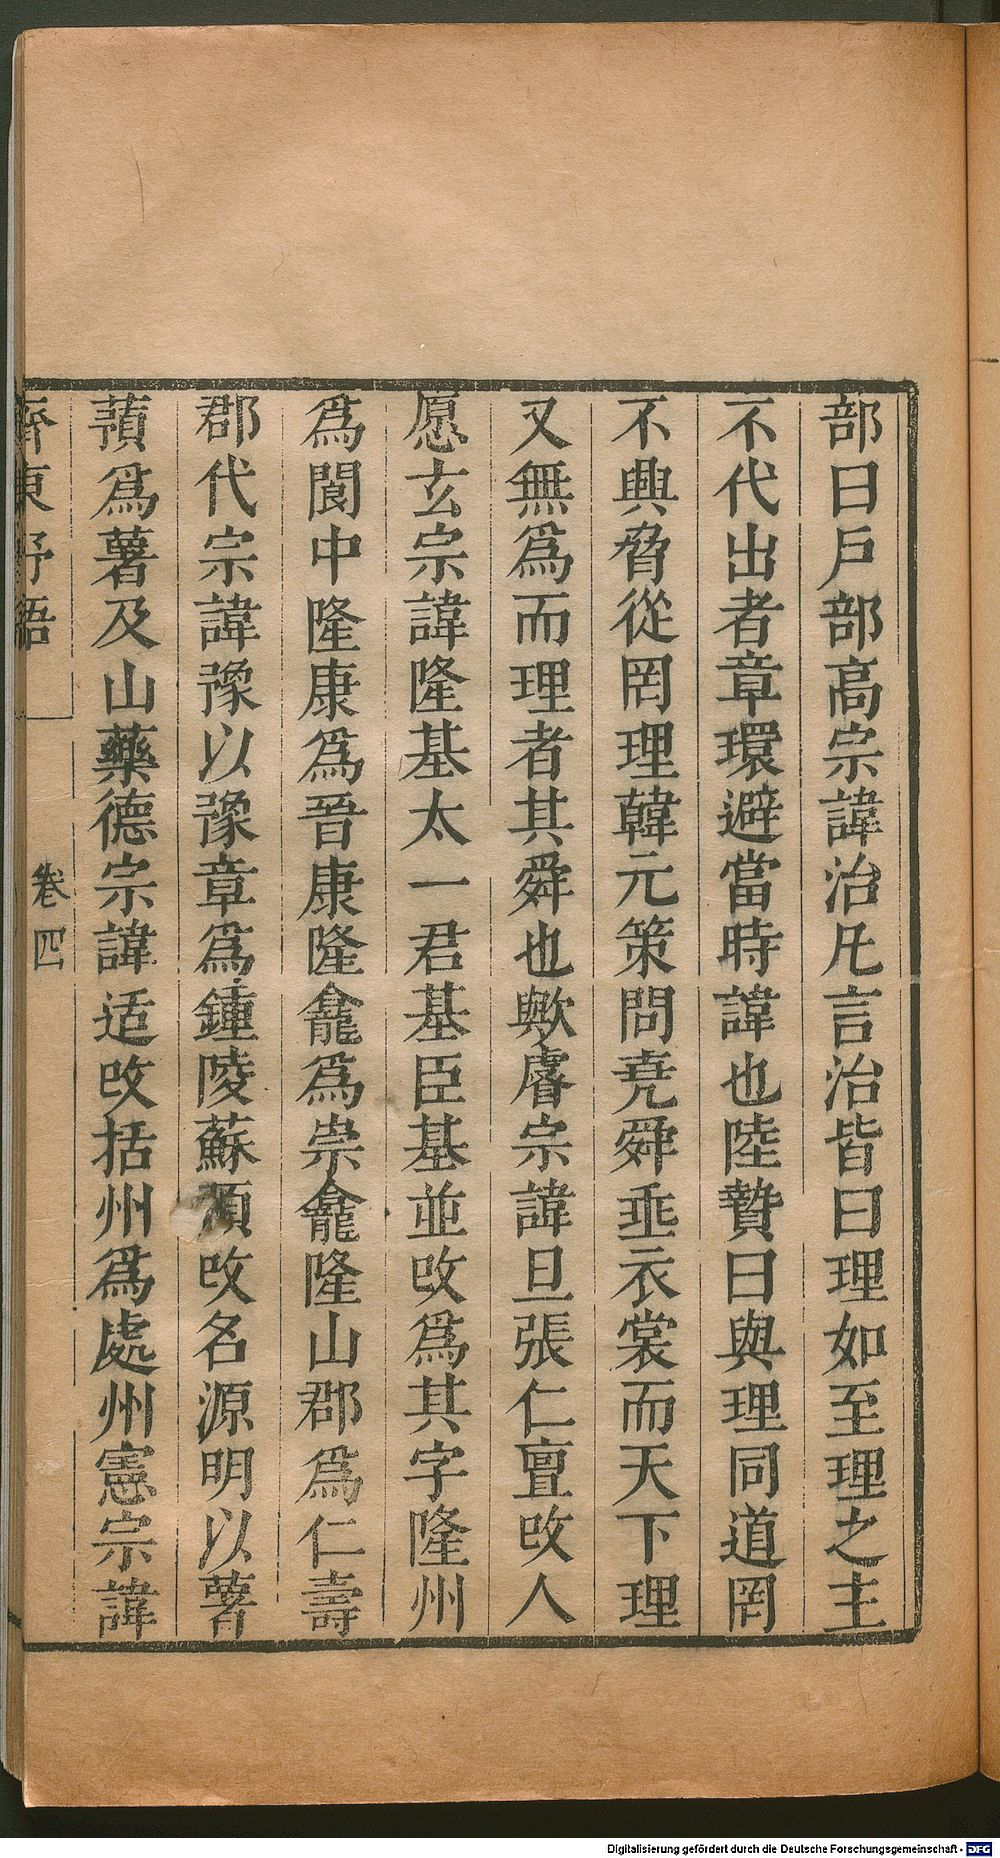 部曰戶部高宗諱治凡言治皆曰理如至理之主
不代出者章環避當時諱也陸贄曰與理同道罔
不興脅從罔理韓元策問堯舜垂衣裳而天下理
又無爲而理者其舜也歟睿宗諱旦張仁亶改人
愿玄宗諱隆基太一君基臣基並改爲其字隆州
爲閬中隆康爲晉康隆龕爲崇龕隆山郡爲仁壽
郡代宗諱豫以豫章爲鍾陵蘇預改名源明以薯
蕷爲薯及山藥德宗諱适改括州爲處州憲宗諱
齊東野語
卷四
Digitalisierung gefördert durch die Deutsche Forschungsgemeinschaft - DFG